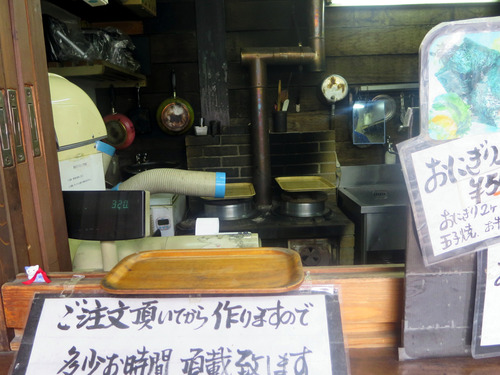 ご注文頂いてから作りますので
多少お時間頂載致します
おにぎり
¥5
おにぎり2ヶ
玉子焼、お
320